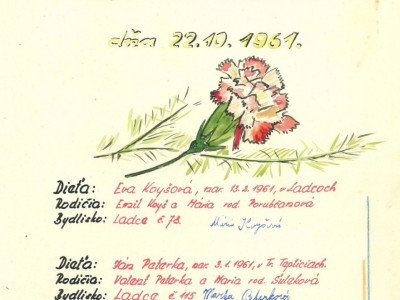 dňa 22.10.1961.
Dieťa: Eva Koyšová, nar. 13.2.1961, v Ladcoch
Rodičia: Emil Koyš a Mária rod. Porubčanová
Bydlisko: Ladce č. 78. Mária Koyšová
Dieťa: Ján Peterka, nar. 3.1.1961, v T. Tepliciach.
Rodičia: Valent Peterka a Maria rod. Suleková
Bydlisko: Ladce č. 115